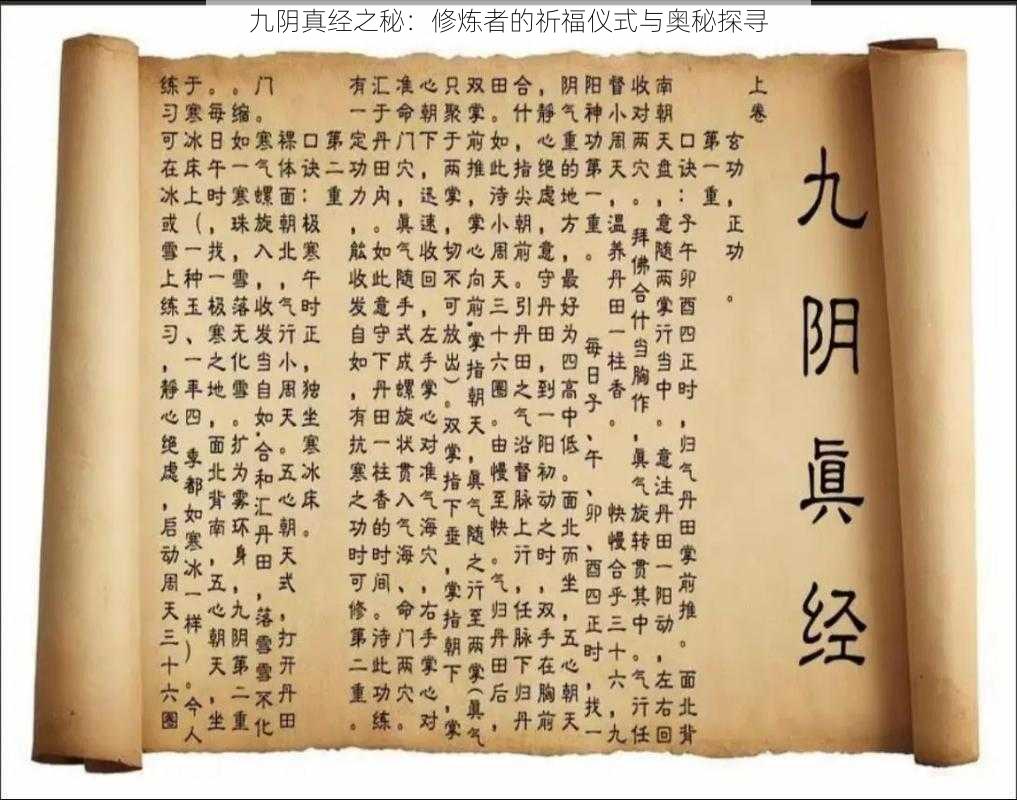 九阴真经之秘：修炼者的祈福仪式与奥秘探寻
九阴眞经
上卷
玄功，正功。
第一重，
口诀：子午卯酉四正时，归气丹田掌前推。面北背
南朝天盘，意随两掌行当中。意注丹田一阳动，左右回
收对两穴。，拜佛合什当胸作，眞气旋转贯其中。气行任
督小周天，温养丹田一柱香。快慢合乎三十六，九
阳神功第一重。每日子、午、卯、酉四正时，找一
阴气重的地方，最好为四高中低。面北而坐，五心朝天
，静心绝虑，意守丹田，到一阳初动之时，双手在胸前
合什，指尖朝前。引丹田之气沿督脉上行，任脉下归丹
田。如此待小周天三十六圈。由慢至快。气归丹田后，
双掌前推，掌心向前，掌指朝天，眞气随之行至两掌（眞气
只聚于两掌，切不可放出）。双掌指下垂，掌指朝下，掌
心朝下，迅速收回，左手掌心对准气海穴，右手掌心对
准命门穴，眞气随手式成螺旋状贯入气海、命门两穴。
汇于丹田内。如此意守下丹田一柱香的时间。待此功练
有一定功力，能收发自如，有抗寒之功时可修第二重。
第二重
口诀：极寒午时正，独坐寒冰床。
裸体面朝北，气行小周天。五心朝天式，打开丹田
门。寒气螺旋入，收发当自如，合和汇丹田，落雪雪不化
。缩如一寒珠，雪落无化雪。扩为雾环身，九阴第二重
。每日午时，找一极寒之地，面北背南，五心朝天，坐
于寒冰床上（一种玉、一年四季都如寒冰一样）。今人
练习可在冰或雪上练习，静心绝虑，启动周天三十六圈